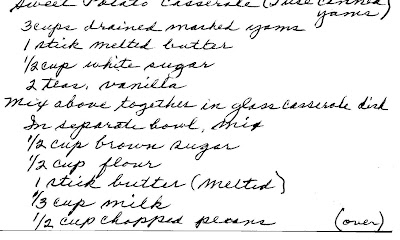 Sweet Potato Casserole (I use canned
yams)
3 cups drained mashed yams
1 stick melted butter
1/2 cup white sugar
2 teas. vanilla
Mix above together in glass casserole dish
In separate bowl, mix
1/2 cup brown sugar
1/2 cup flour
1 stick butter (melted)
1/3 cup milk
1/2 cup chopped pecans (over)